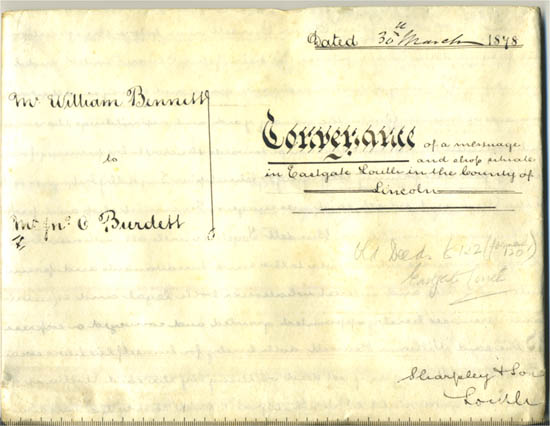 Dated 30th March 1878
Mr William Bennett
to
Mr Jno C Burdett
Conveyance of a messuage
and shop situate
in Eastgate Louth in the County of
Lincoln
Old Deeds 122 (formerly 120)
Eastgate Louth
Sharpley & Son
Louth